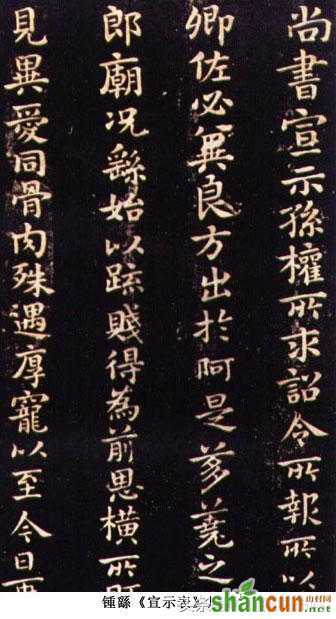 尚書宣示孫權所求詔令所報所以
卿佐必冀良方出於阿是芻蕘之
郎廟况繇始以踈賤得為前恩横所
見異愛同骨肉殊遇厚寵以至今日再
锺繇《宣示表》
shancun